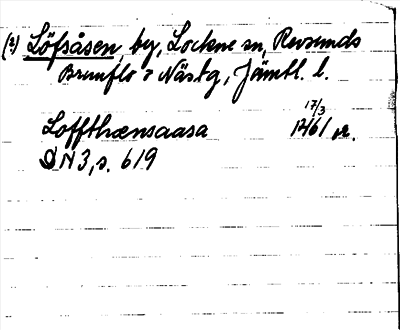 (2) Löfsåsen, by, Lockne sn, Revsunds
Brunflo o Näs tg, Jämtl. l.
17/3
Loffthænsaasa 1461 or.
DN 3, s. 619